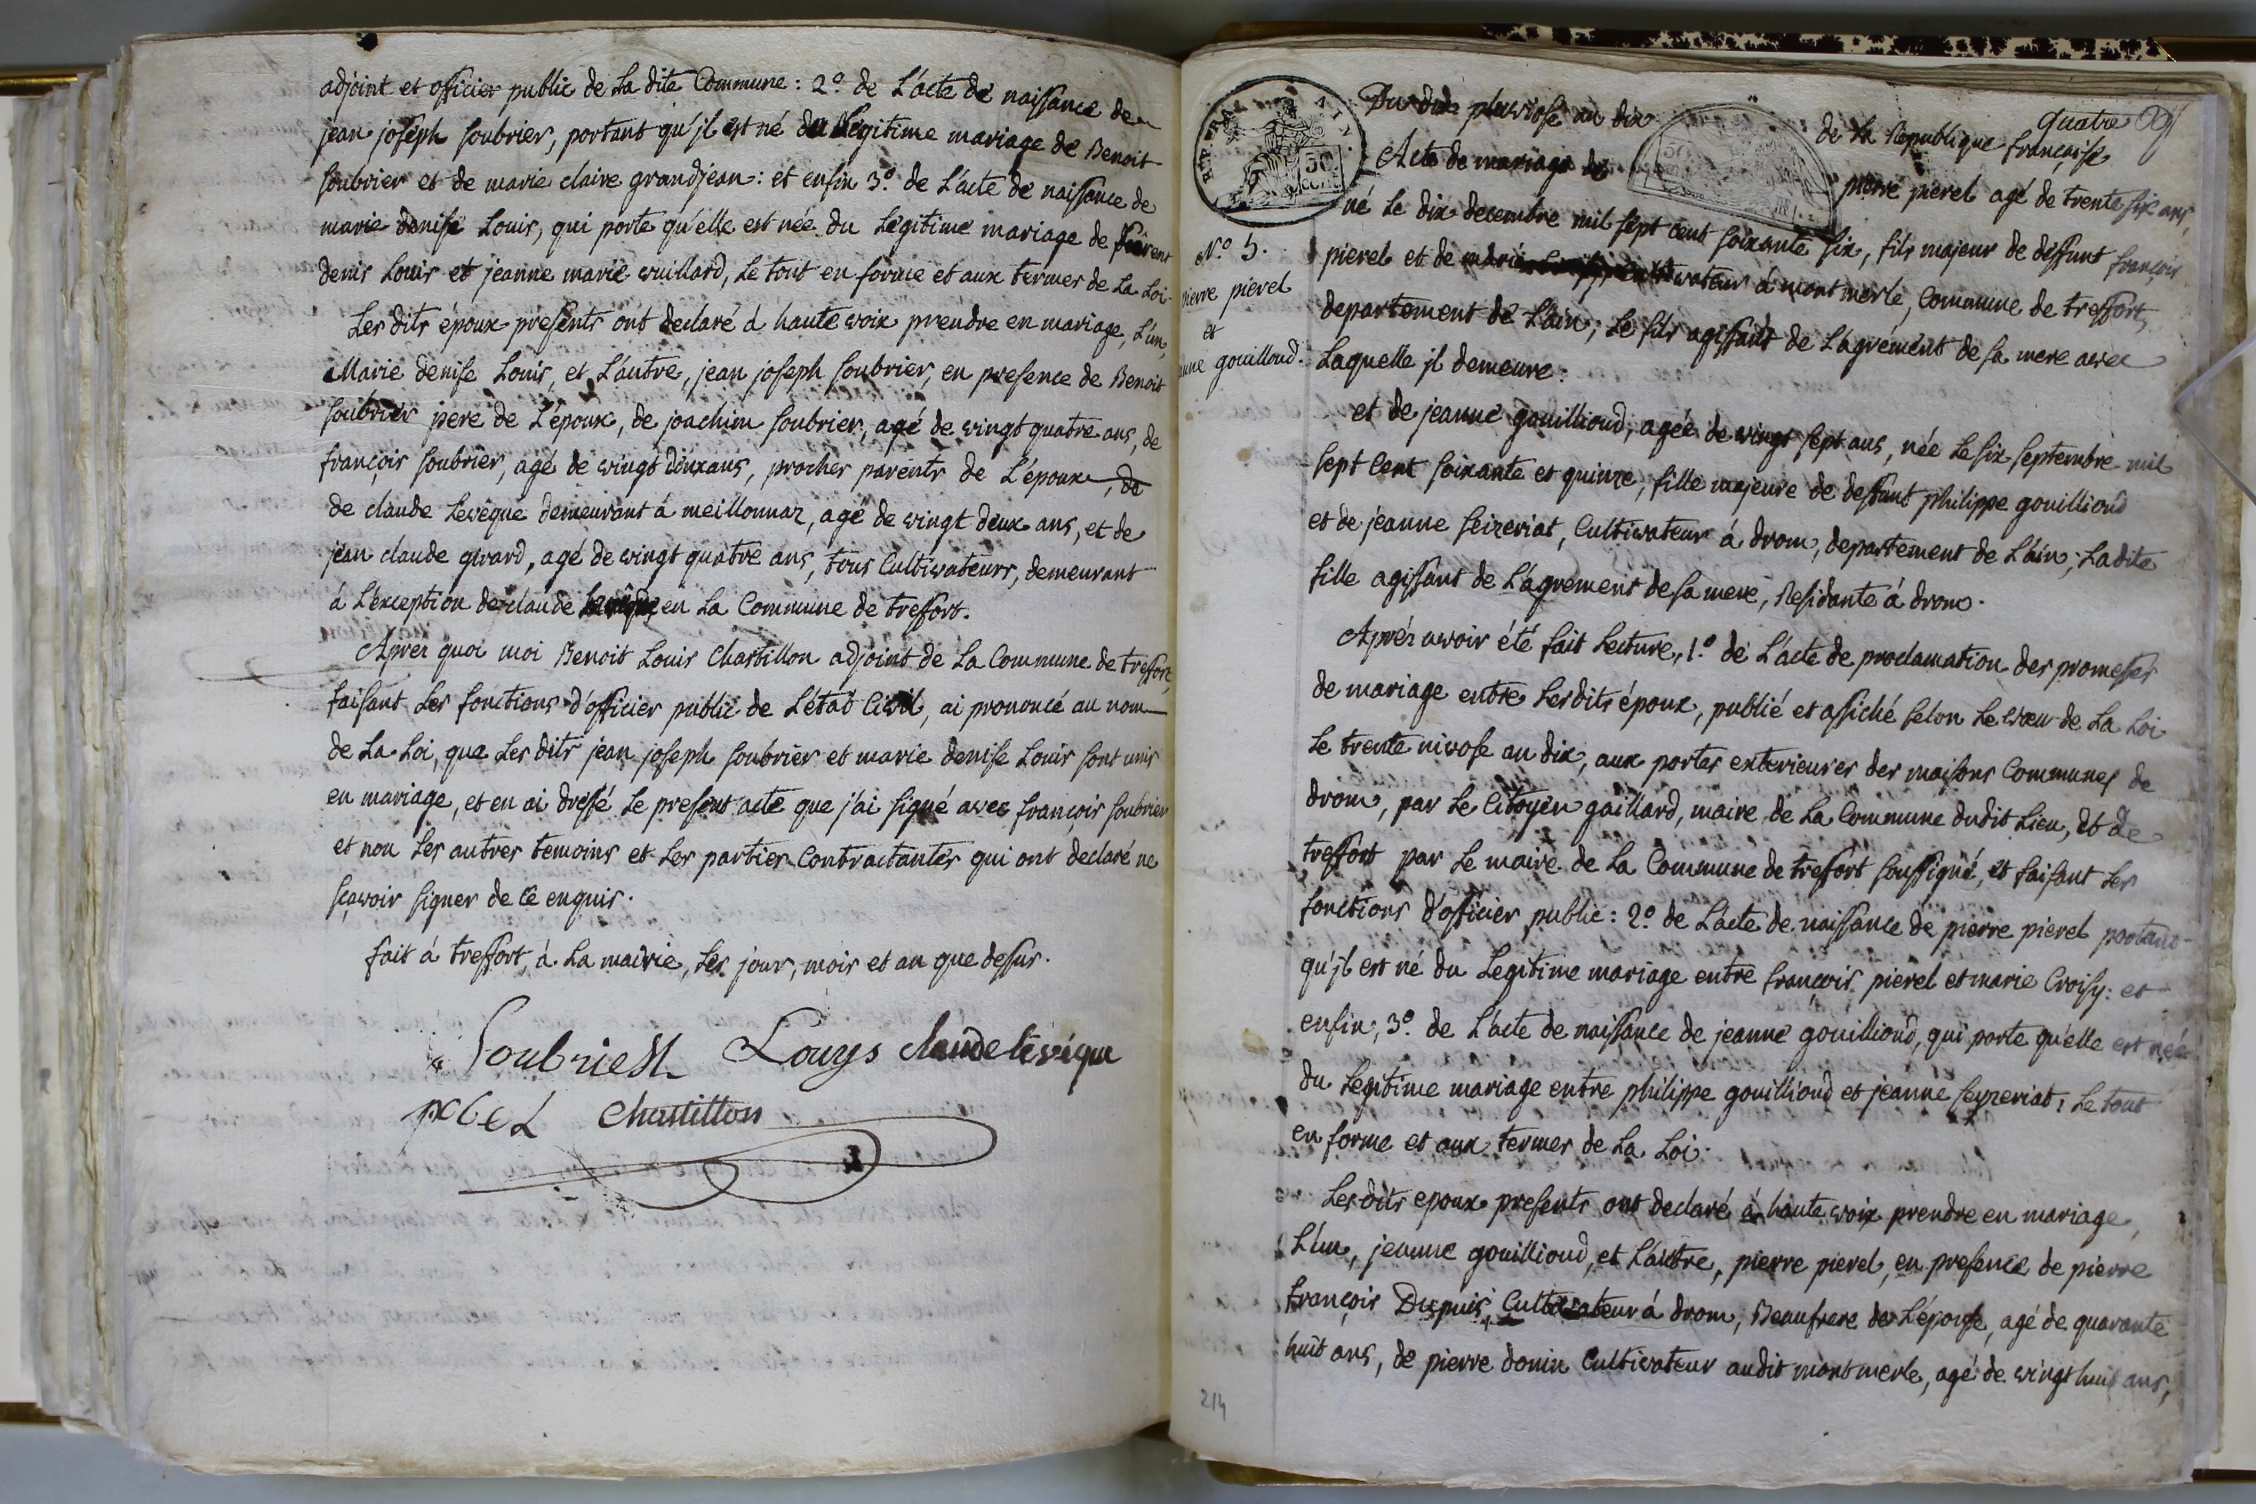 adjoint et officier public de La dite Commune : 2.º de L'acte de naissance de
jean joseph soubrier, portant qu'jl est né du légitime mariage de Benoit
soubrier et de marie claire grandjean : et enfin 3.º de L'acte de naissance de
marie denise Louis, qui porte qu'elle est née du Légitime mariage de
denis Louis et jeanne marie wuillard, Le tout en forme et aux termes de La Loi.
Les dits époux presents ont declaré à haute voix prendre en mariage, L'un,
Marie denise Louis, et L'autre, jean joseph soubrier, en presence de Benoit
soubrier pere de L'époux, de joachim soubrier, agé de vingt quatre ans, de
françois soubrier, agé de vingt deux ans, proches parents de L'époux, de
de claude Levêque demeurant à meillonnaz, agé de vingt deux ans, et de
jean claude girard, agé de vingt quatre ans, tous Cultivateurs, demeurant
à L'exception de claude Levêque en La Commune de treffort.
Aprez quoi moi Benoit Louis Chastillon adjoint de La Commune de treffort,
faisant Les fonctions d'officier public de L'état Civil, ai prononcé au nom
de La Loi, que Les dits jean joseph soubrier et marie denise Louis sont unis
en mariage, et en ai dressé Le present acte que j'ai signé avec françois soubrier
et non Les autres temoins et Les parties Contractantes qui ont declaré ne
sçavoir signer de ce enquis.
fait à treffort, à La mairie, Les jour, mois et an que dessus.
Soubrier Louys claude levêque
Chastillon
quatre
Du dix pluviose an dix de La Republique française
REP. FRA.
50
CENT.
Acte de mariage de pierre pierel agé de trente six ans,
né Le dix decembre mil sept cent soixante six, fils majeur de deffunt françois
Nº 5.
pierre pierel
et
gouilloud.
pierel et de marie cultivateur à mont merle, Commune de treffort,
departement de L'ain ; Le fils agissant de L'agrément de sa mere avec
Laquelle jl demeure :
et de jeanne gouillioud, agée de vingt sept ans, née Le six septembre mil
sept Cent soixante et quinze, fille majeure de deffunt philippe gouillioud
et de jeanne seizeriat, Cultivateur à drom, departement de L'ain ; La dite
fille agissant de L'agrement de sa mere, Residante à drom.
Après avoir été fait Lecture, 1.º de L'acte de proclamation des promesses
de mariage entre Les dits époux, publié et affiché selon Le vœu de La Loi
Le trente nivose an dix, aux portes exterieures des maisons Communes de
drom, par Le Citoyen gaillard, maire de La Commune dudit Lieu, et de
treffort par Le maire de La Commune de treffort soussigné, et faisant Les
fonctions d'officier public : 2.º de L'acte de naissance de pierre pierel portant
qu'jl est né du Legitime mariage entre françois pierel et marie Croisy : et
enfin, 3.º de L'acte de naissance de jeanne gouillioud, qui porte qu'elle est née
du Legitime mariage entre philippe gouillioud et jeanne seyzeriat ; Le tout
en forme et aux termes de La Loi.
Les dits epoux presents ont declaré à haute voix prendre en mariage,
L'un, jeanne gouillioud, et L'autre, pierre pierel, en presence de pierre
françois Dupuis, Cultivateur à drom, Beaufrere de L'épouse, agé de quarante
huit ans, de pierre donin Cultivateur audit montmerle, agé de vingt huit ans,
214